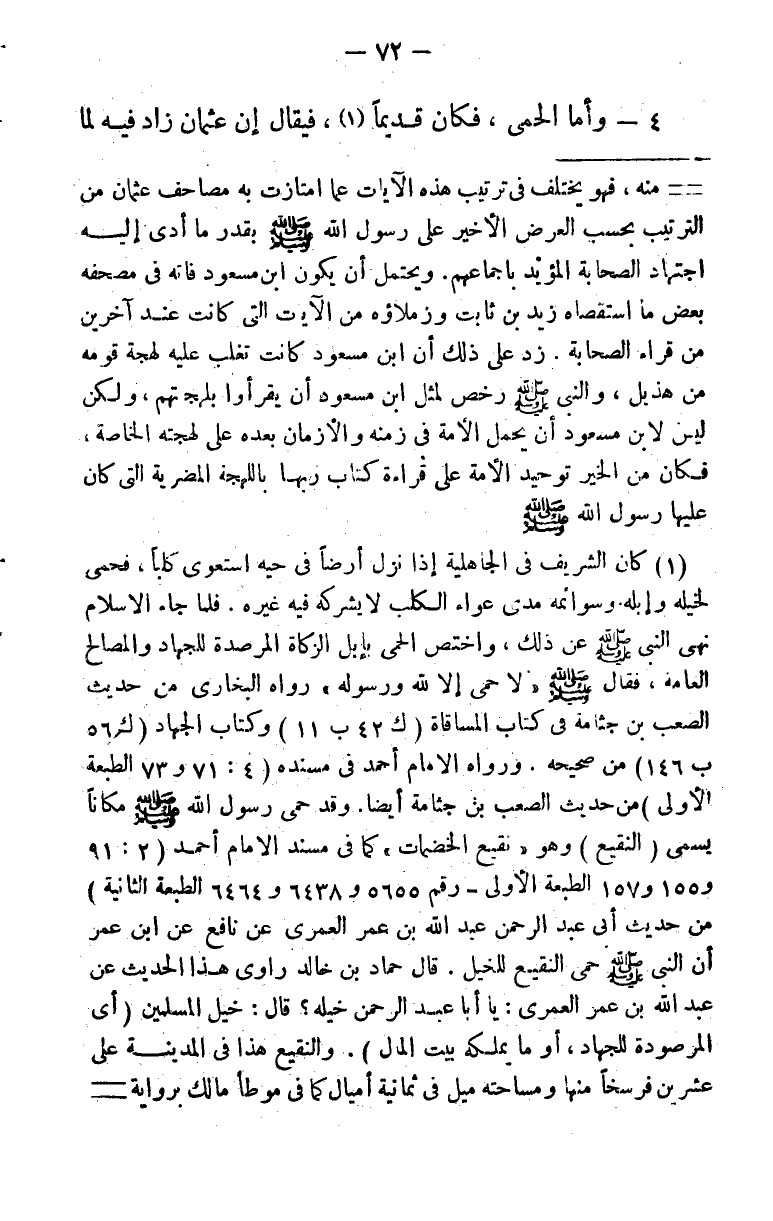 — ٧٢ —
٤ — وأما الحمى ، فكان قديماً (١) ، فيقال إن عثمان زاد فيه لما
== منه ، فهو يختلف فى ترتيب هذه الآيات عما امتازت به مصاحف عثمان من
الترتيب بحسب العرض الأخير على رسول الله ﷺ بقدر ما أدى إليه
اجتهاد الصحابة المؤيد باجماعهم . ويحتمل أن يكون ابن مسعود فاته فى مصحفه
بعض ما استقصاه زيد بن ثابت وزملاؤه من الآيات التى كانت عند آخرين
من قراء الصحابة . زد على ذلك أن ابن مسعود كانت تغلب عليه لهجة قومه
من هذيل ، والنبى ﷺ رخص لمثل ابن مسعود أن يقرأوا بلهجتهم ، ولكن
ليس لابن مسعود أن يحمل الأمة فى زمنه والأزمان بعده على لهجته الخاصة ،
فكان من الخير توحيد الأمة على قراءة كتاب ربها باللهجة المضرية التى كان
عليها رسول الله ﷺ
(١) كان الشريف فى الجاهلية إذا نزل أرضاً فى حيه استعوى كلباً ، فحمى
لخيله وإبله وسوائمه مدى عواء الكلب لا يشركه فيه غيره . فلما جاء الاسلام
نهى النبى ﷺ عن ذلك ، واختص الحمى بإبل الزكاة المرصدة للجهاد والمصالح
العامة ، فقال ﷺ « لا حمى إلا لله ورسوله » رواه البخارى من حديث
الصعب بن جثامة فى كتاب المساقاة ( ك ٤٢ ب ١١ ) وكتاب الجهاد ( ك ٥٦
ب ١٤٦ ) من صحيحه . ورواه الامام أحمد فى مسنده ( ٤ : ٧١ و ٧٣ الطبعة
الأولى ) من حديث الصعب بن جثامة أيضا . وقد حمى رسول الله ﷺ مكاناً
يسمى ( النقيع ) وهو « نقيع الخضمات » كما فى مسند الامام أحمد ( ٢ : ٩١
و ١٥٥ و ١٥٧ الطبعة الأولى - رقم ٥٦٥٥ و ٦٤٣٨ و ٦٤٦٤ الطبعة الثانية )
من حديث أبى عبد الرحمن عبد الله بن عمر العمرى عن نافع عن ابن عمر
أن النبى ﷺ حمى النقيع للخيل . قال حماد بن خالد راوى هذا الحديث عن
عبد الله بن عمر العمرى : يا أبا عبد الرحمن خيله ؟ قال : خيل المسلمين ( أى
المرصودة للجهاد ، أو ما يملكه بيت المال ) . والنقيع هذا فى المدينة على
عشرين فرسخاً منها ومساحته ميل فى ثمانية أميال كما فى موطأ مالك برواية ==